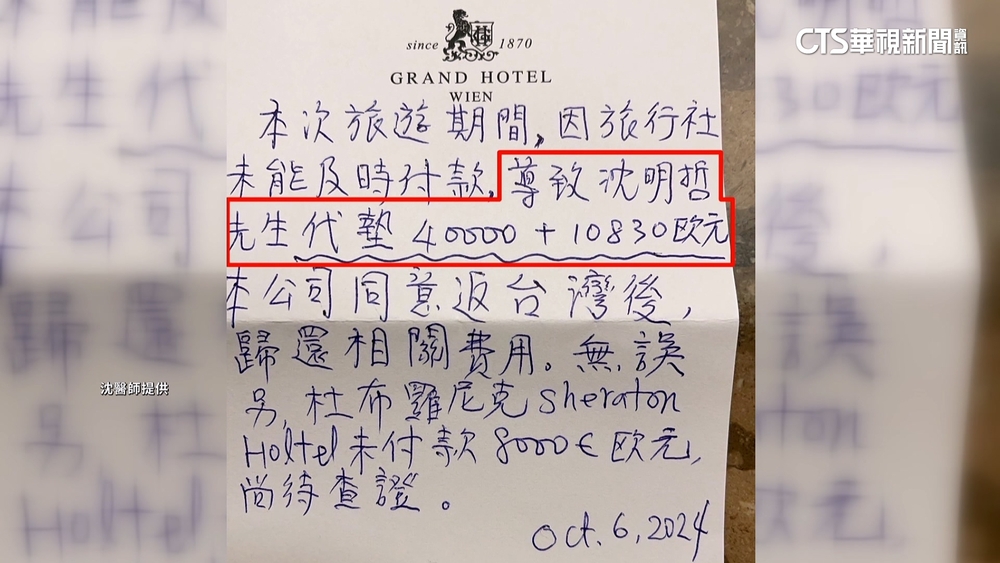 CTS華視新聞資訊
since 1870
GRAND HOTEL
WIEN
本次旅遊期間,因旅行社
未能及時付款,導致沈明哲
先生代墊 40000 + 10830歐元
本公司同意返台灣後,
歸還相關費用。無誤
另,杜布羅尼克 sheraton
Holtel未付款8000€歐元,
尚待查證。
oct. 6, 2024
沈醫師提供